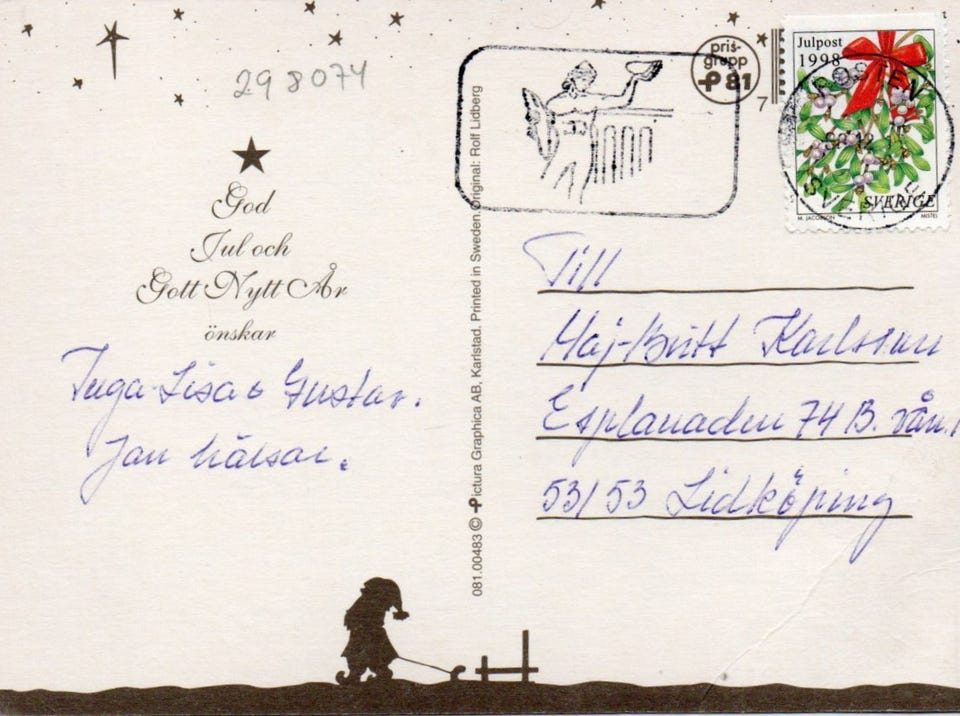 298074
God
Jul och
Gott Nytt År
önskar
Inga-Lisa o Gustav.
Jan hälsar.
081.00483 © Pictura Graphica AB, Karlstad. Printed in Sweden. Original: Rolf Lidberg
pris-
grupp
P 81
7
Julpost
1998
SVERIGE
M. JACOBSON MISTEL
Till
Maj-Britt Karlsson
Esplanaden 74 B. vån.1
531 53 Lidköping